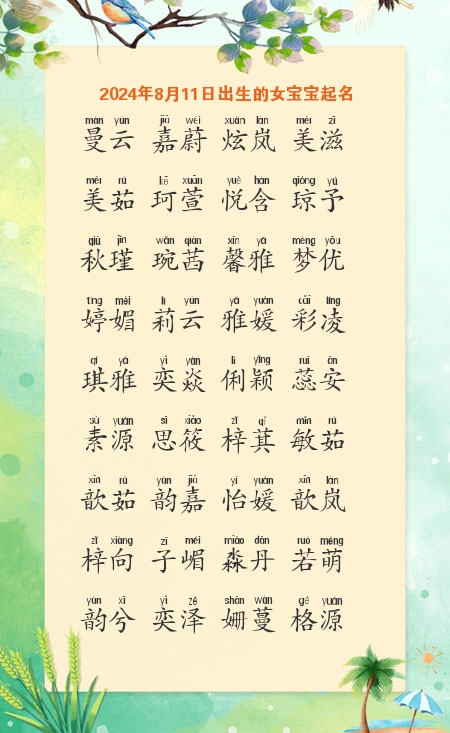 2024年8月11日出生的女宝宝起名
màn yún jiā wèi xuàn lán měi zī
曼云 嘉蔚 炫岚 美滋
měi rú kē xuān yuè hán qióng yú
美茹 珂萱 悦含 琼予
qiū jǐn wǎn qiàn xīn yǎ mèng yōu
秋瑾 琬茜 馨雅 梦优
tíng mèi lì yún yǎ yuàn cǎi líng
婷媚 莉云 雅媛 彩凌
qí yǎ yì yàn lì yǐng ruǐ ān
琪雅 奕焱 俐颖 蕊安
sù yuán sī xiǎo zǐ qí mǐn rú
素源 思筱 梓萁 敏茹
xīn rú yùn jiā yí yuàn xīn lán
歆茹 韵嘉 怡媛 歆岚
zǐ xiàng zi méi miǎo dān ruò méng
梓向 子嵋 淼丹 若萌
yùn xī yì zé shān wàn gé yuán
韵兮 奕泽 姗蔓 格源